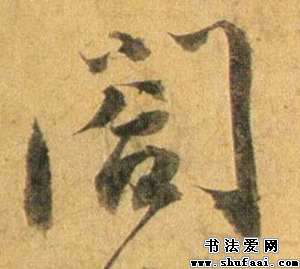 閻
书法爱网
www.shufaai.com